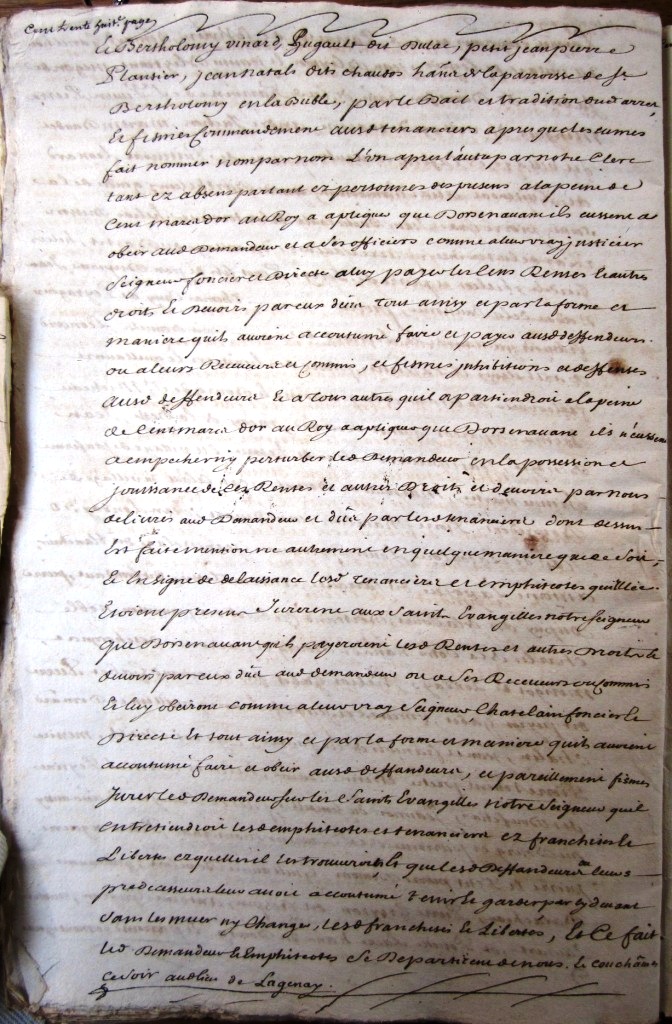 Cent trente huit.e page
et Bertholomy vinard, Hugault dit Dulac, petit jean pierre
Plantier, jean Natals dits chautos han̄s de la parroisse de St
Bertholomy en la Double, par le Bail et tradition dud arrest,
Et fismes Commandement ausd tenanciers apres que les eumes
fait nommer nom par nom L'un apres l'autre par notre Clerc
tant ez absens partant ez personnes des presens a la peine de
Cent marcs dor au Roy a apliquer que Dorsenavant ils eussent a
obeir aud Demandeur et a ses officiers comme a leur vray justicier
Seigneur foncier et Directe a luy payer les Cens Rentes et autres
droits et Devoirs par eux deus tout ainsy et par la forme et
maniere quils auroient accoutumé faire et payer ausd deffendeurs
ou a leurs Receveurs et Commis, et fismes inhibitions et deffenses
ausd deffendeurs et a tous autres quil apartiendroit a la peine
de Cent marcs dor au Roy a apliquer que Dorsenavant ils n'eussent
a empecher ny perturber led Demandeur en la possession et
jouissance de ses Rentes et autres Droits et devoirs par nous
delivrés aud Demandeur et dus par lesd tenanciers dont dessus
Est faite mention ne autrement en quelque maniere que ce soit,
Et En signe de delaissance lesd tenanciers et emphiteotes quillec
Etoient presens Jurerent aux Saints Evangilles notre seigneur
que Dorsenavant ils payeroient lesd Rentes et autres Droits et
devoirs par eux dus aud demandeur ou a ses Receveurs ou Commis
et luy obeiront comme a leur vray Seigneur Chatelain foncier et
Directe Et tout ainsy et par la forme et maniere quils auroient
accoutumé faire et obeir ausd deffandeurs, et pareillement fismes
Jurer led Demandeur sur les Saints Evangilles Notre Seigneur quil
entretiendroit lesd emphiteotes et tenanciers ez franchises et
Libertés ezquelles il les trouveroit et que lesd Deffandeurs et leurs
predecesseurs leur avoit accoutumé tenir et garder par cy devant
sans les muer ny Changer, lesd franchises et Libertés, Et Ce fait
led Demandeur et Emphiteotes se Departirent de nous et couchâmes
ce soir aud lieu de Lagenay.